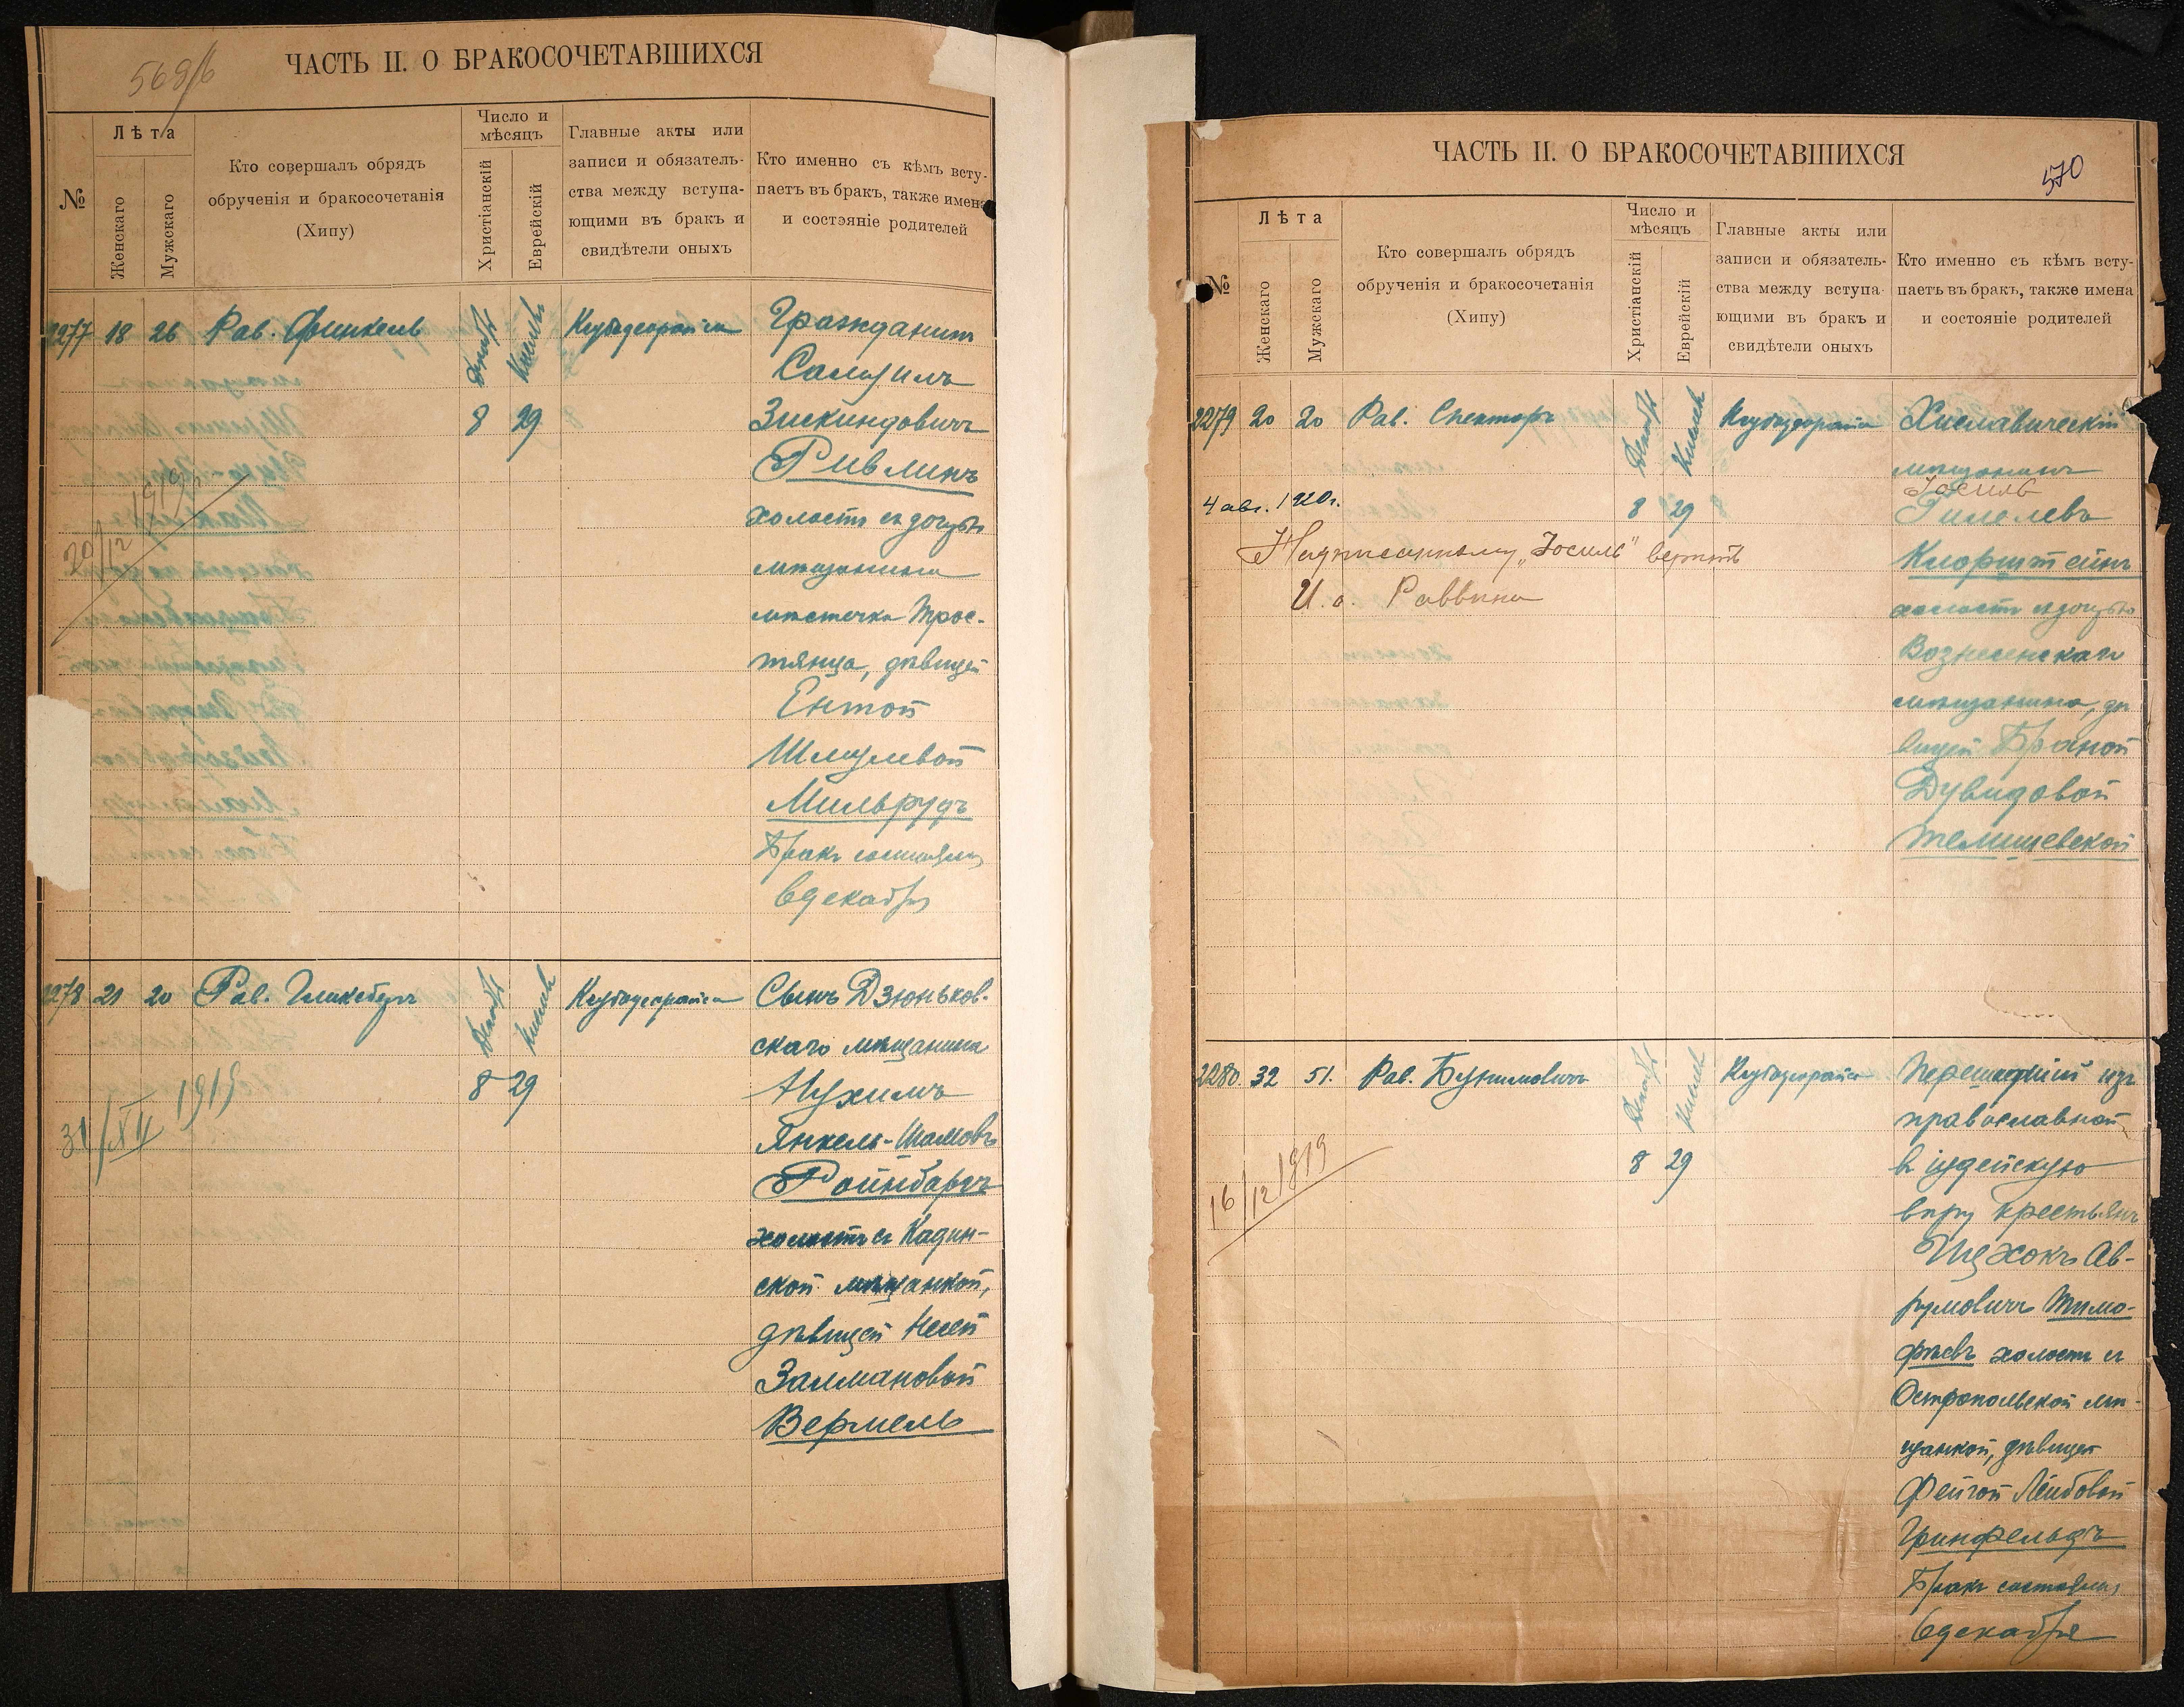 569/б
ЧАСТЬ II. О БРАКОСОЧЕТАВШИХСЯ
№
Лѣта
Женскаго
Мужскаго
Кто совершалъ обрядъ
обрученія и бракосочетанія
(Хипу)
Число и
мѣсяцъ
Христіанскій
Еврейскій
Главные акты или
записи и обязатель-
ства между вступа-
ющими въ бракъ и
свидѣтели оныхъ
Кто именно съ кѣмъ всту-
паетъ въ бракъ, также имена
и состояніе родителей
2277 18 26 Рав. Финкель
Декабр Кислевъ
8 29
Гражданинъ
Самуилъ
Зискиндовичъ
Ривлинъ
холостъ съ дочерью
мѣщанина
мѣстечка Трос-
тянца, дѣвицей
Ентой
Шмулевой
Мильрудъ
Бракъ состоялся
6 декабря
20/12 1919
2278 21 20 Рав. Гликсбергъ
Декабр Кислевъ
8 29
Сынъ Дзюньков-
скаго мѣщанина
Нухимъ
Янкель-Шамовъ
Ройнбаргъ
холостъ съ Кодин-
ской мѣщанкой,
дѣвицей Несей
Залмановой
Вермель
31/XII 1919
ЧАСТЬ II. О БРАКОСОЧЕТАВШИХСЯ
570
№
Лѣта
Женскаго
Мужскаго
Кто совершалъ обрядъ
обрученія и бракосочетанія
(Хипу)
Число и
мѣсяцъ
Христіанскій
Еврейскій
Главные акты или
записи и обязатель-
ства между вступа-
ющими въ бракъ и
свидѣтели оныхъ
Кто именно съ кѣмъ всту-
паетъ въ бракъ, также имена
и состояніе родителей
2279 20 20 Рав. Спекторъ
Декабр Кислевъ
8 29
Хиславическій
мѣщанинъ
Іосиль
Гилелевъ
Клорштейнъ
холостъ съ дочерью
Вознесенскаго
мѣщанина, дѣ
вицей Браной
Дувидовой
Темишевской
4 авг. 1920 г.
Надписанному „Іосиль" верить
И. о. Раввина
2280. 32 51. Рав. Бунимовичъ
Декабр Кислевъ
8 29
Перешедшій изъ
православной
въ іудейскую
вѣру крестьянъ
Ицхокъ Ав-
румовичъ Тимо-
фѣевъ холостъ съ
Остропольской мѣ-
щанкой, дѣвицей
Фейгой Лейбовой
Гринфельдъ
Бракъ состоялся
6 декабря
16/12 1919